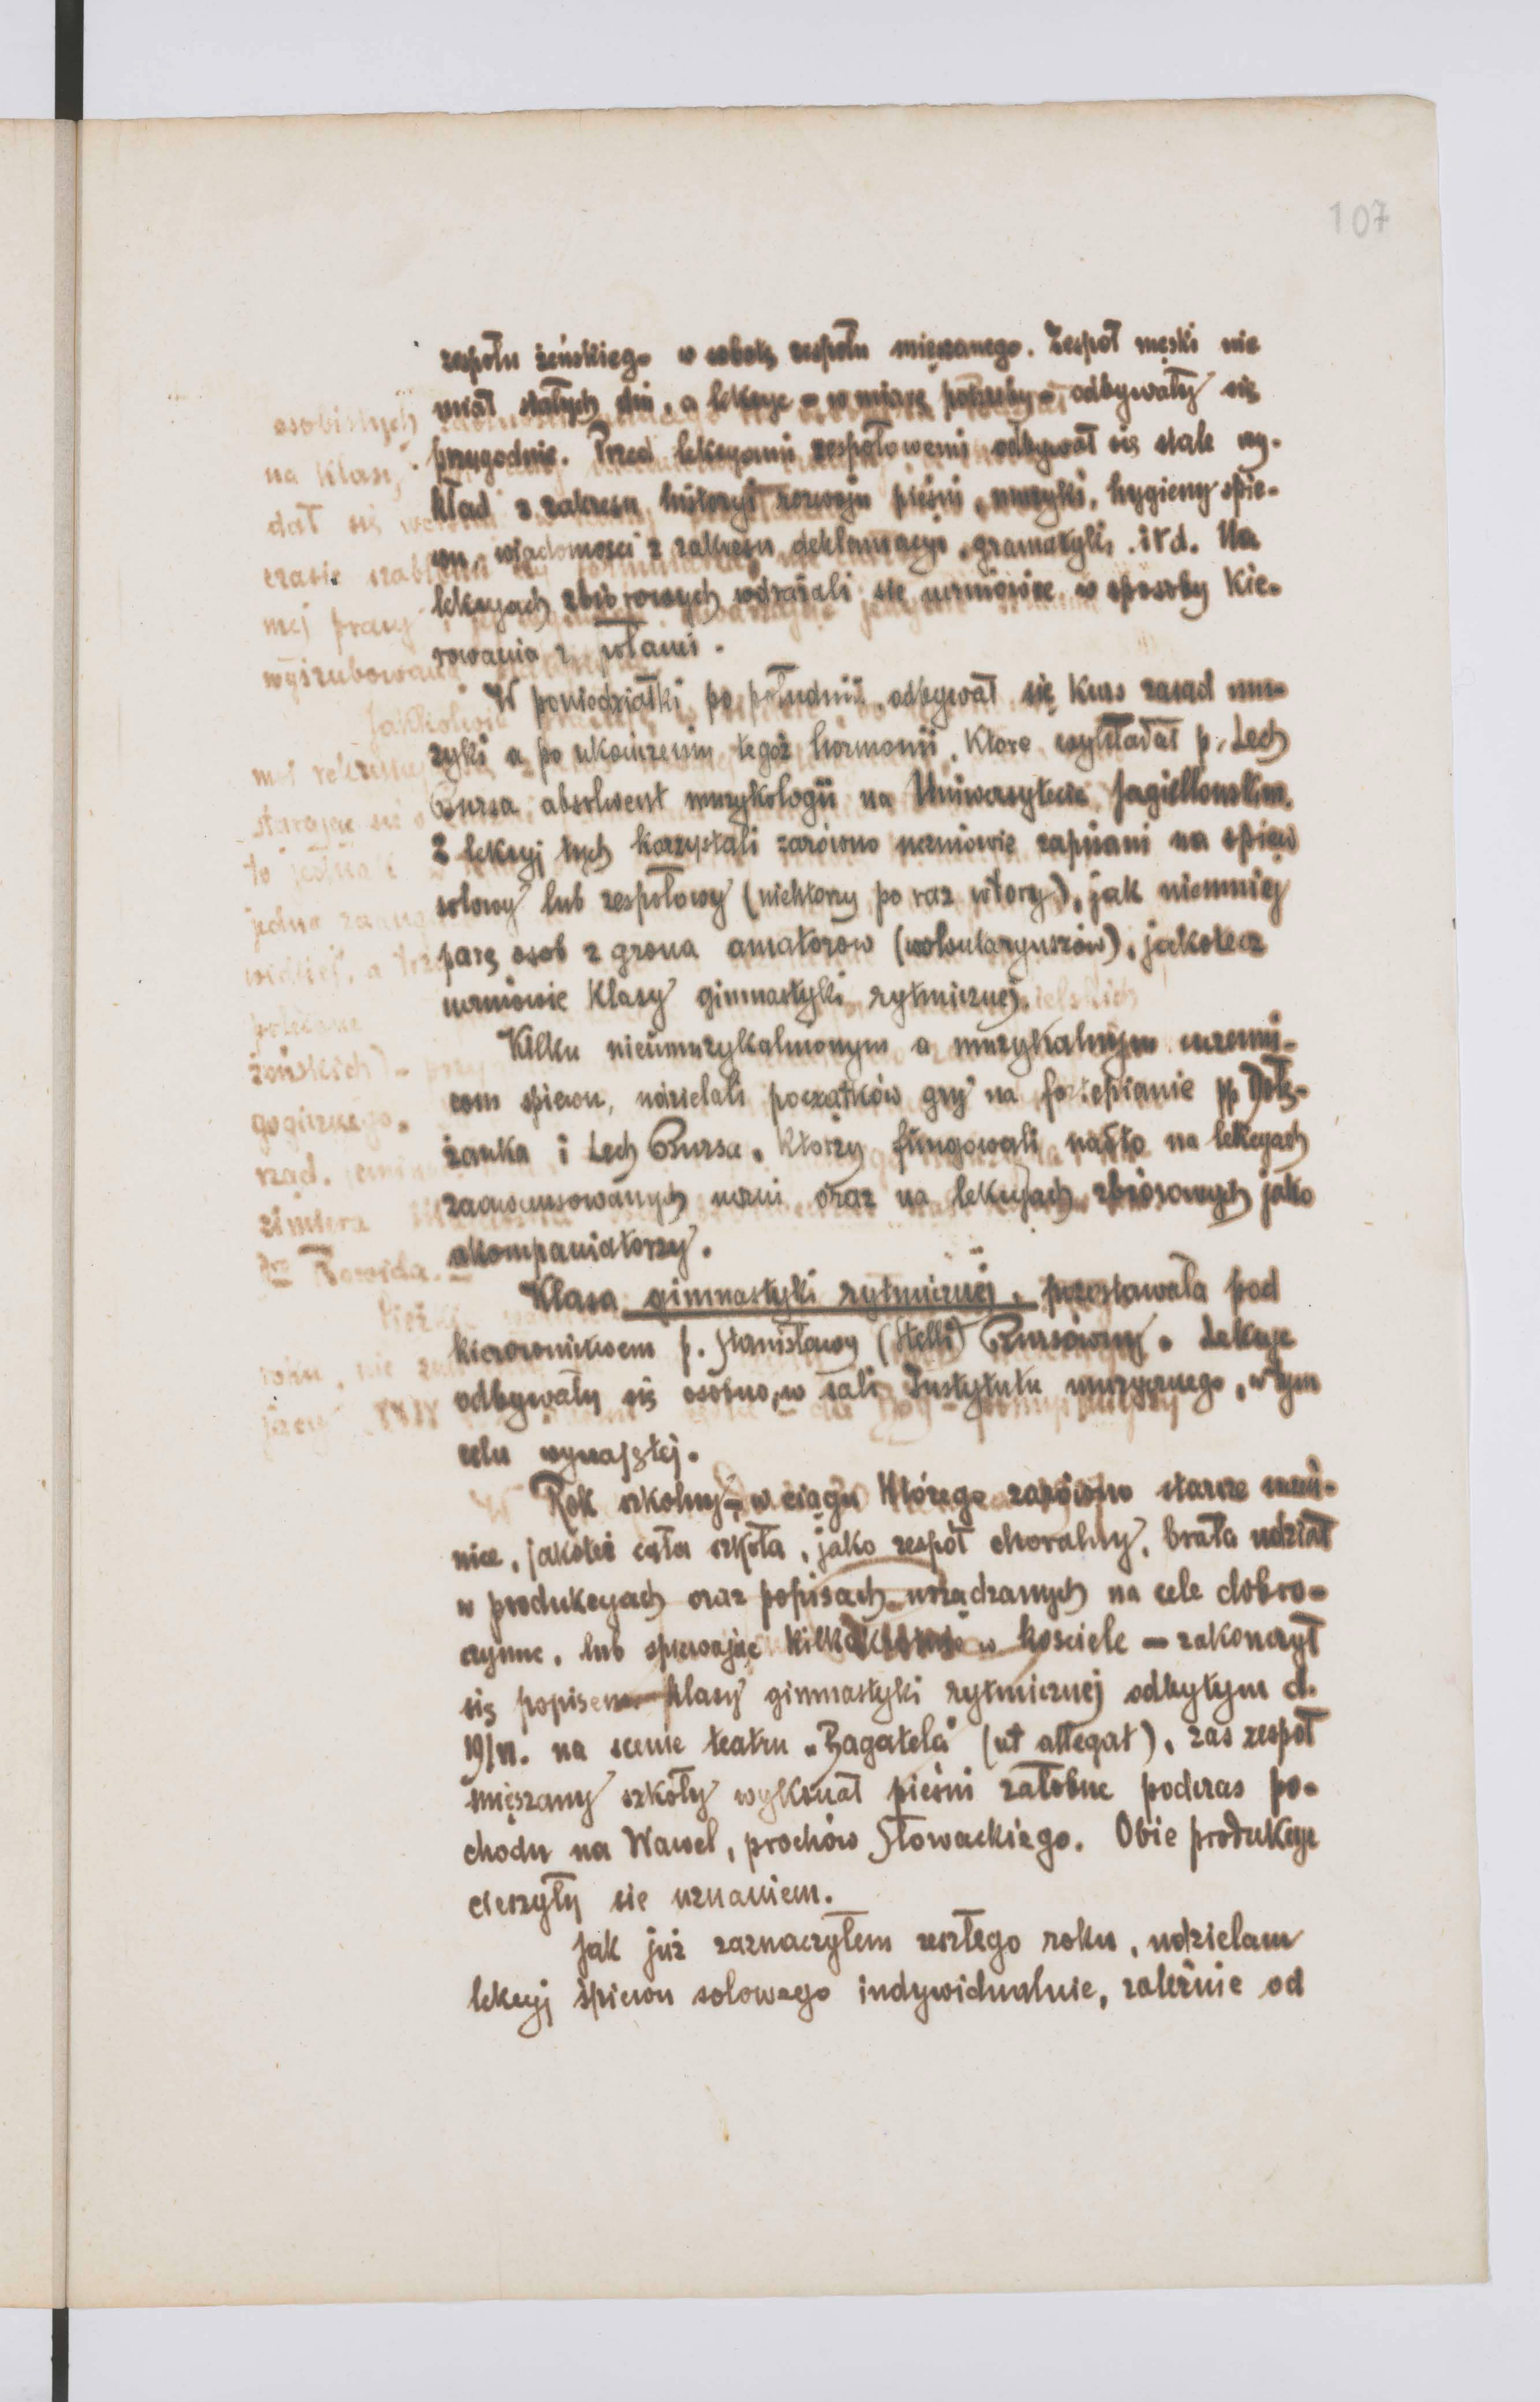 107
zespołu żeńskiego w sobotę zespołu mięszanego. Zespół męski nie
miał stałych dni, a lekcye – w miarę potrzeby – odbywały się
przygodnie. Przed lekcyami zespołowemi odbywał się stale wy-
kład z zakresu historyi rozwoju pieśni, muzyki, hygieny śpie-
wu, wiadomości z zakresu deklamacyi, gramatyki itd. Na
lekcyach zbiorowych wdrażali się uczniowie w sposoby kie-
rowania
W poniedziałki po południu odbywał się kurs zasad mu-
zyki a po ukończeniu tegoż harmonii, które wykładał p. Lech
Bursa, absolwent muzykologii na Uniwersytecie Jagiellońskim.
Z lekcyj tych korzystali zarówno uczniowie zapisani na śpiew
solowy lub zespołowy (niektórzy po raz wtóry), jak niemniej
parę osób z grona amatorów (wolontaryuszów), jakoteż
uczniowie klasy gimnastyki rytmicznej.
Kilku nieumuzykalnionym a muzykalnym uczenni-
com śpiewu, udzielali początków gry na fortepianie pp
żanka i Lech Bursa, którzy fungowali nadto na lekcyach
zaawansowanych uczni oraz na lekcyjach zbiorowych jako
akompaniatorzy.
Klasa gimnastyki rytmicznej, pozostawała pod
kierownictwem p. Stanisławy (Stelli) Bursówny. Lekcye
odbywały się osobno, w sali Instytutu muzycznego, w tym
celu wynajętej.
Rok szkolny – w ciągu którego zarówno starsze uczen-
nice, jakoteż cała szkoła, jako zespół choralny, brała udział
w produkcyach oraz popisach urządzanych na cele dobro-
czynne, lub śpiewając kilkakrotnie w kościele – zakończył
się popisem klasy gimnastyki rytmicznej odbytym d.
19/VI. na scenie teatru „Bagatela" (ut allegat), zaś zespół
mięszany szkoły wykonał pieśni żałobne podczas po-
chodu na Wawel, prochów Słowackiego. Obie produkcye
cieszyły się uznaniem.
Jak już zaznaczyłem zeszłego roku, udzielam
lekcyj śpiewu solowego indywidualnie, zależnie od